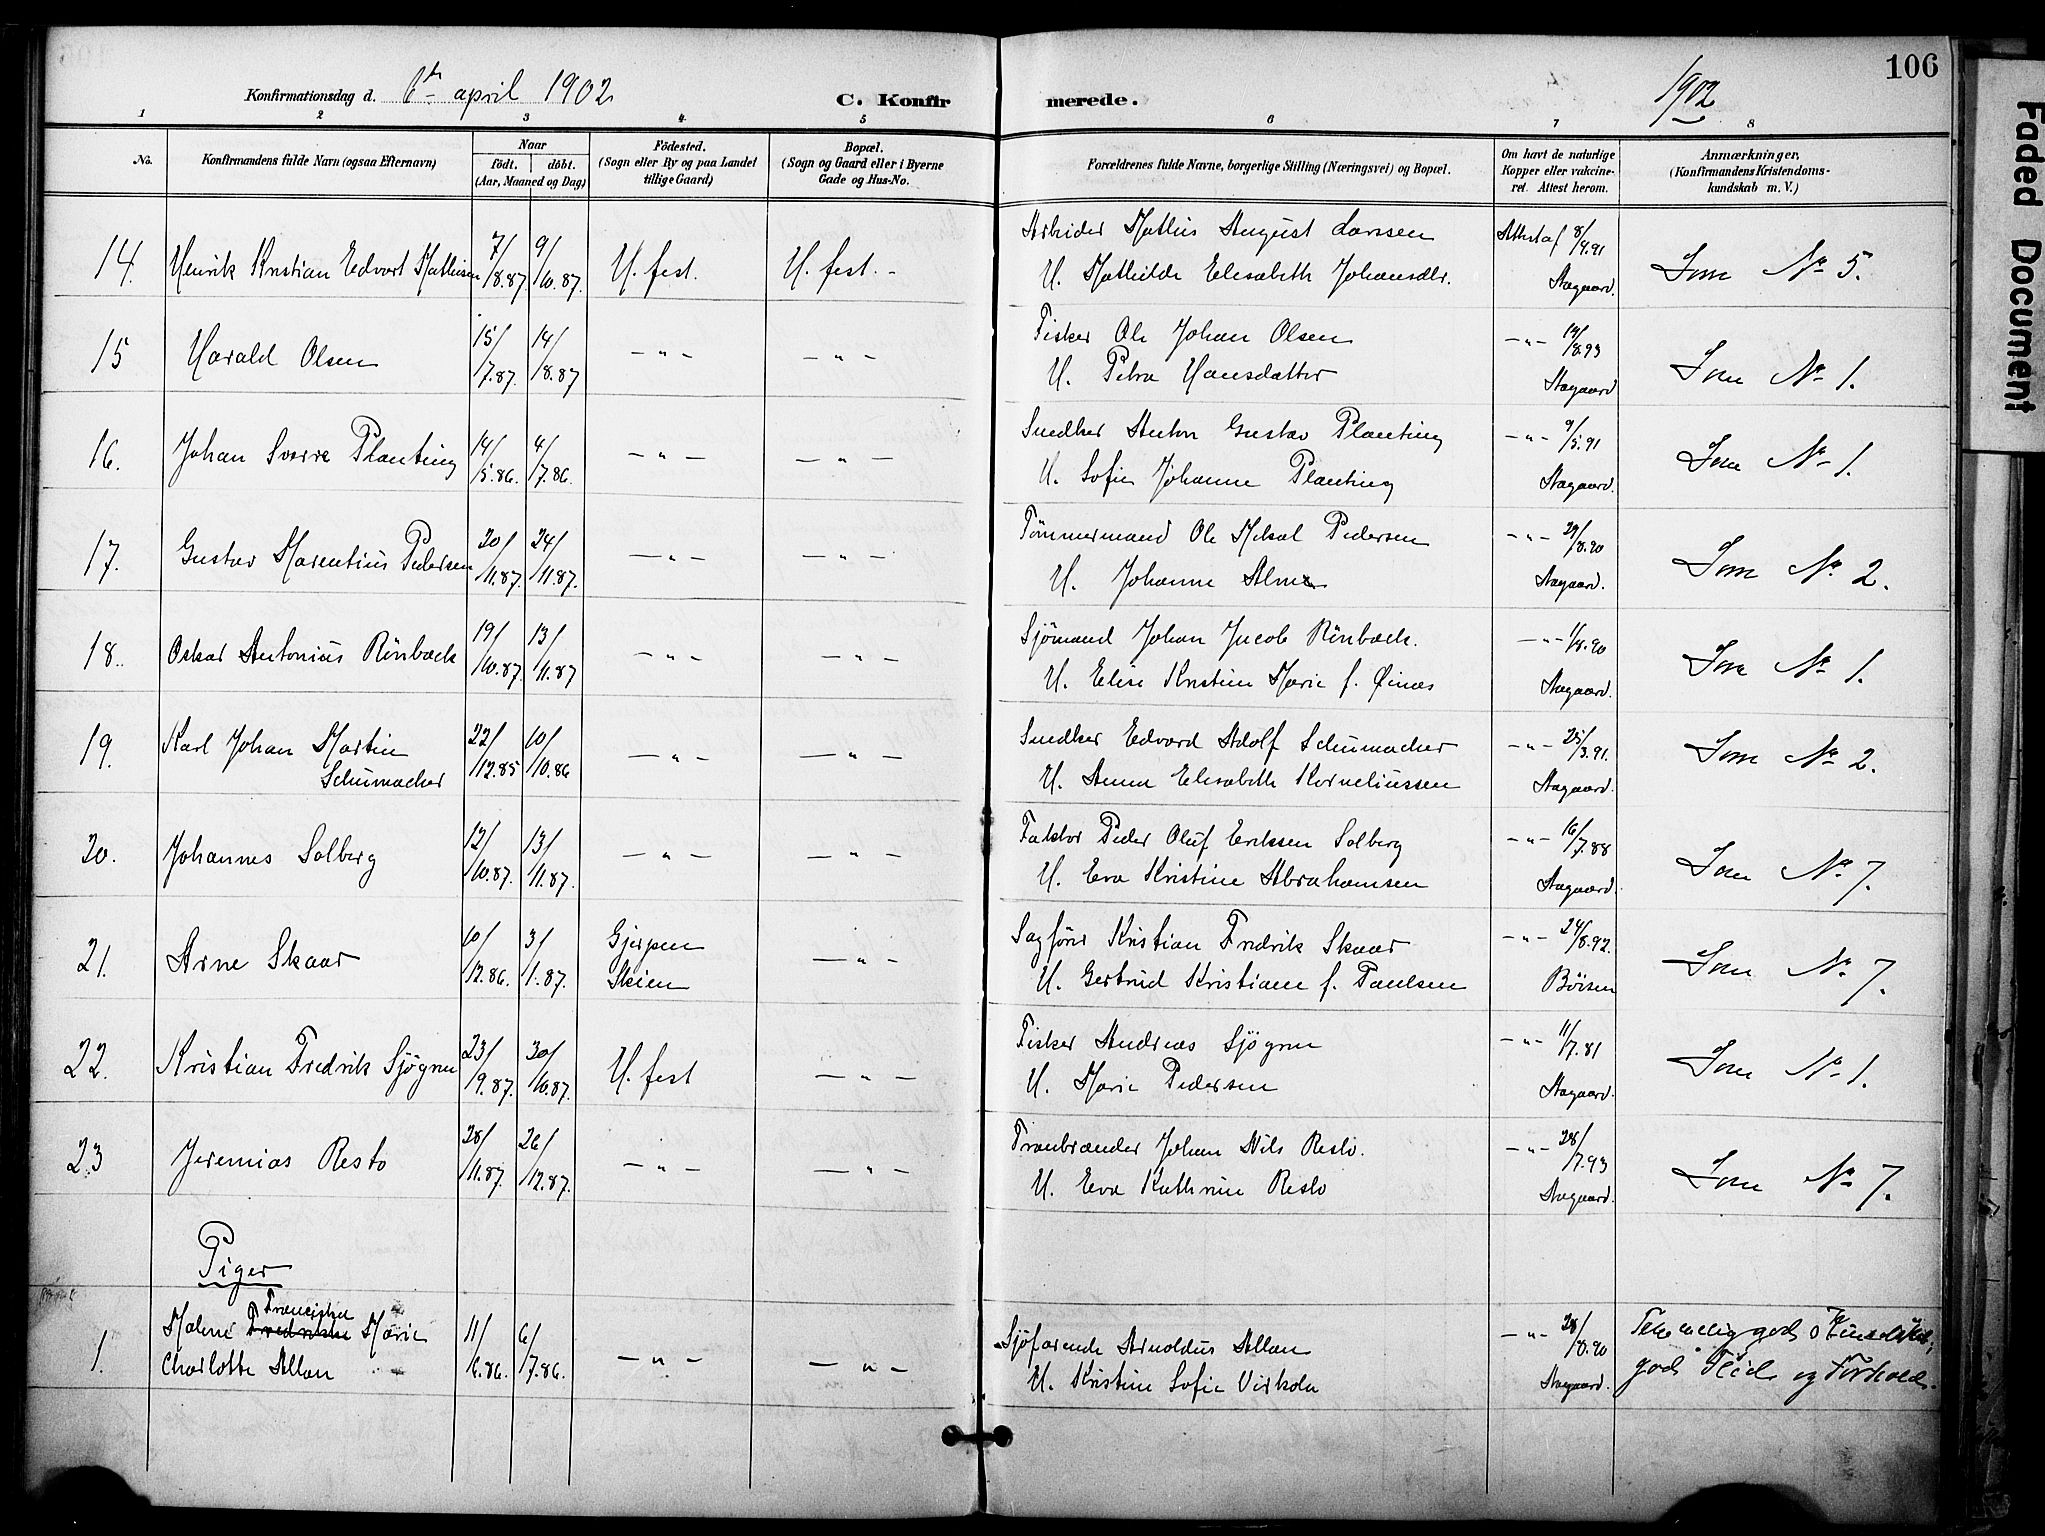 106
Faded Document
Konfirmationsdag d. 6te april 1902
C. Konfirmerede.
1902
1 2 3 4 5 6 7 8
No.
Konfirmandens fulde Navn (ogsaa Efternavn)
Naar
födt. döbt.
(Aar, Maaned og Dag)
Födested.
(Sogn eller By og paa Landet
tillige Gaard)
Bopæl.
(Sogn og Gaard eller i Byerne
Gade og Hus-No.
Forældrenes fulde Navne, borgerlige Stilling (Næringsvei) og Bopæl.
Om havt de naturlige
Kopper eller vakcine-
ret. Attest herom.
Anmærkninger.
(Konfirmandens Kristendoms-
kundskab m. V.)
14. Henrik Kristian Edvart Mathisen 7/8.87 9/10.87. H.fest. H.fest.-
Arbeider Mathis August Larssen
H. Mathilde Elisabeth Johansdtr.
Attest af 8/4.91
Aagaard.
Som No 5.
15 Harald Olsen 15/7.87. 14/8.87 — " — — " —
Fisker Ole Johan Olsen
H. Petra Hansdatter
— " — 19/8.93
Aagaard
Som No 1.
16. Johan Sverre Planting 14/5.86. 4/7.86. — " — — " —
Snedker Anton Gustav Planting
H. Sofie Johanne Planting
— " — 9/5.91
Aagaard.
Som No 1.
17. Gustav Marentius Pedersen 20/11.87. 24/11.87. — " — — " —
Tømmermand Ole Mikal Pedersen
H. Johanne Alma
— " — 29/8.90
Aagaard.
Som No 2.
18. Oskar Antonius Rönbeck 19/10.87. 13/11.87 — " — — " —
Sjømand Johan Jacob Rönbeck.
H. Elise Kristine Marie f. Øinæs
— " — 1/8.90
Aagaard.
Som No 1.
19. Karl Johan Martin
Schumacher 22/12.85 10/10.86 — " — — " —
Snedker Edvard Adolf Schumacher
H. Anna Elisabeth Korneliussen
— " — 25/3.91.
Aagaard.
Som No 2.
20. Johannes Solberg 12/10.87. 13/11.87. — " — — " —
Faktor Peder Oluf Eriksen Solberg
H. Eva Kristine Abrahamsen
— " — 16/7.88
Aagaard.
Som No 7.
21. Arne Skaar 10/12.86. 3/1.87. Gjerpen
Skien — " —
Sagförer Kristian Fredrik Skaar
H. Gertrud Kristiane f. Paulsen
— " — 24/8.92.
Börsen
Som No 7.
22. Kristian Fredrik Sjøgren 23/9.87. 30/10.87. H.fest — " —
Fisker Andreas Sjøgren
H. Marie Pedersen
— " — 11/7.81
Aagaard.
Som No 1.
23 Jeremias Resto 28/11.87. 26/12.87. — " — — " —
Tranbrænder Johan Nils Resto.
H. Eva Kathrine Resto
— " — 28/7.93
Aagaard.
Som No 7.
Piger
Franciska
1. Malene Fredrikke Marie
Charlotte Allan 11/6.86. 6/7.86. — " — — " —
Sjöfarende Arnoldus Allan
H. Kristine Sofie
— " — 28/8.90
Aagaard.
Temmelig god
god Flid og Forhold.